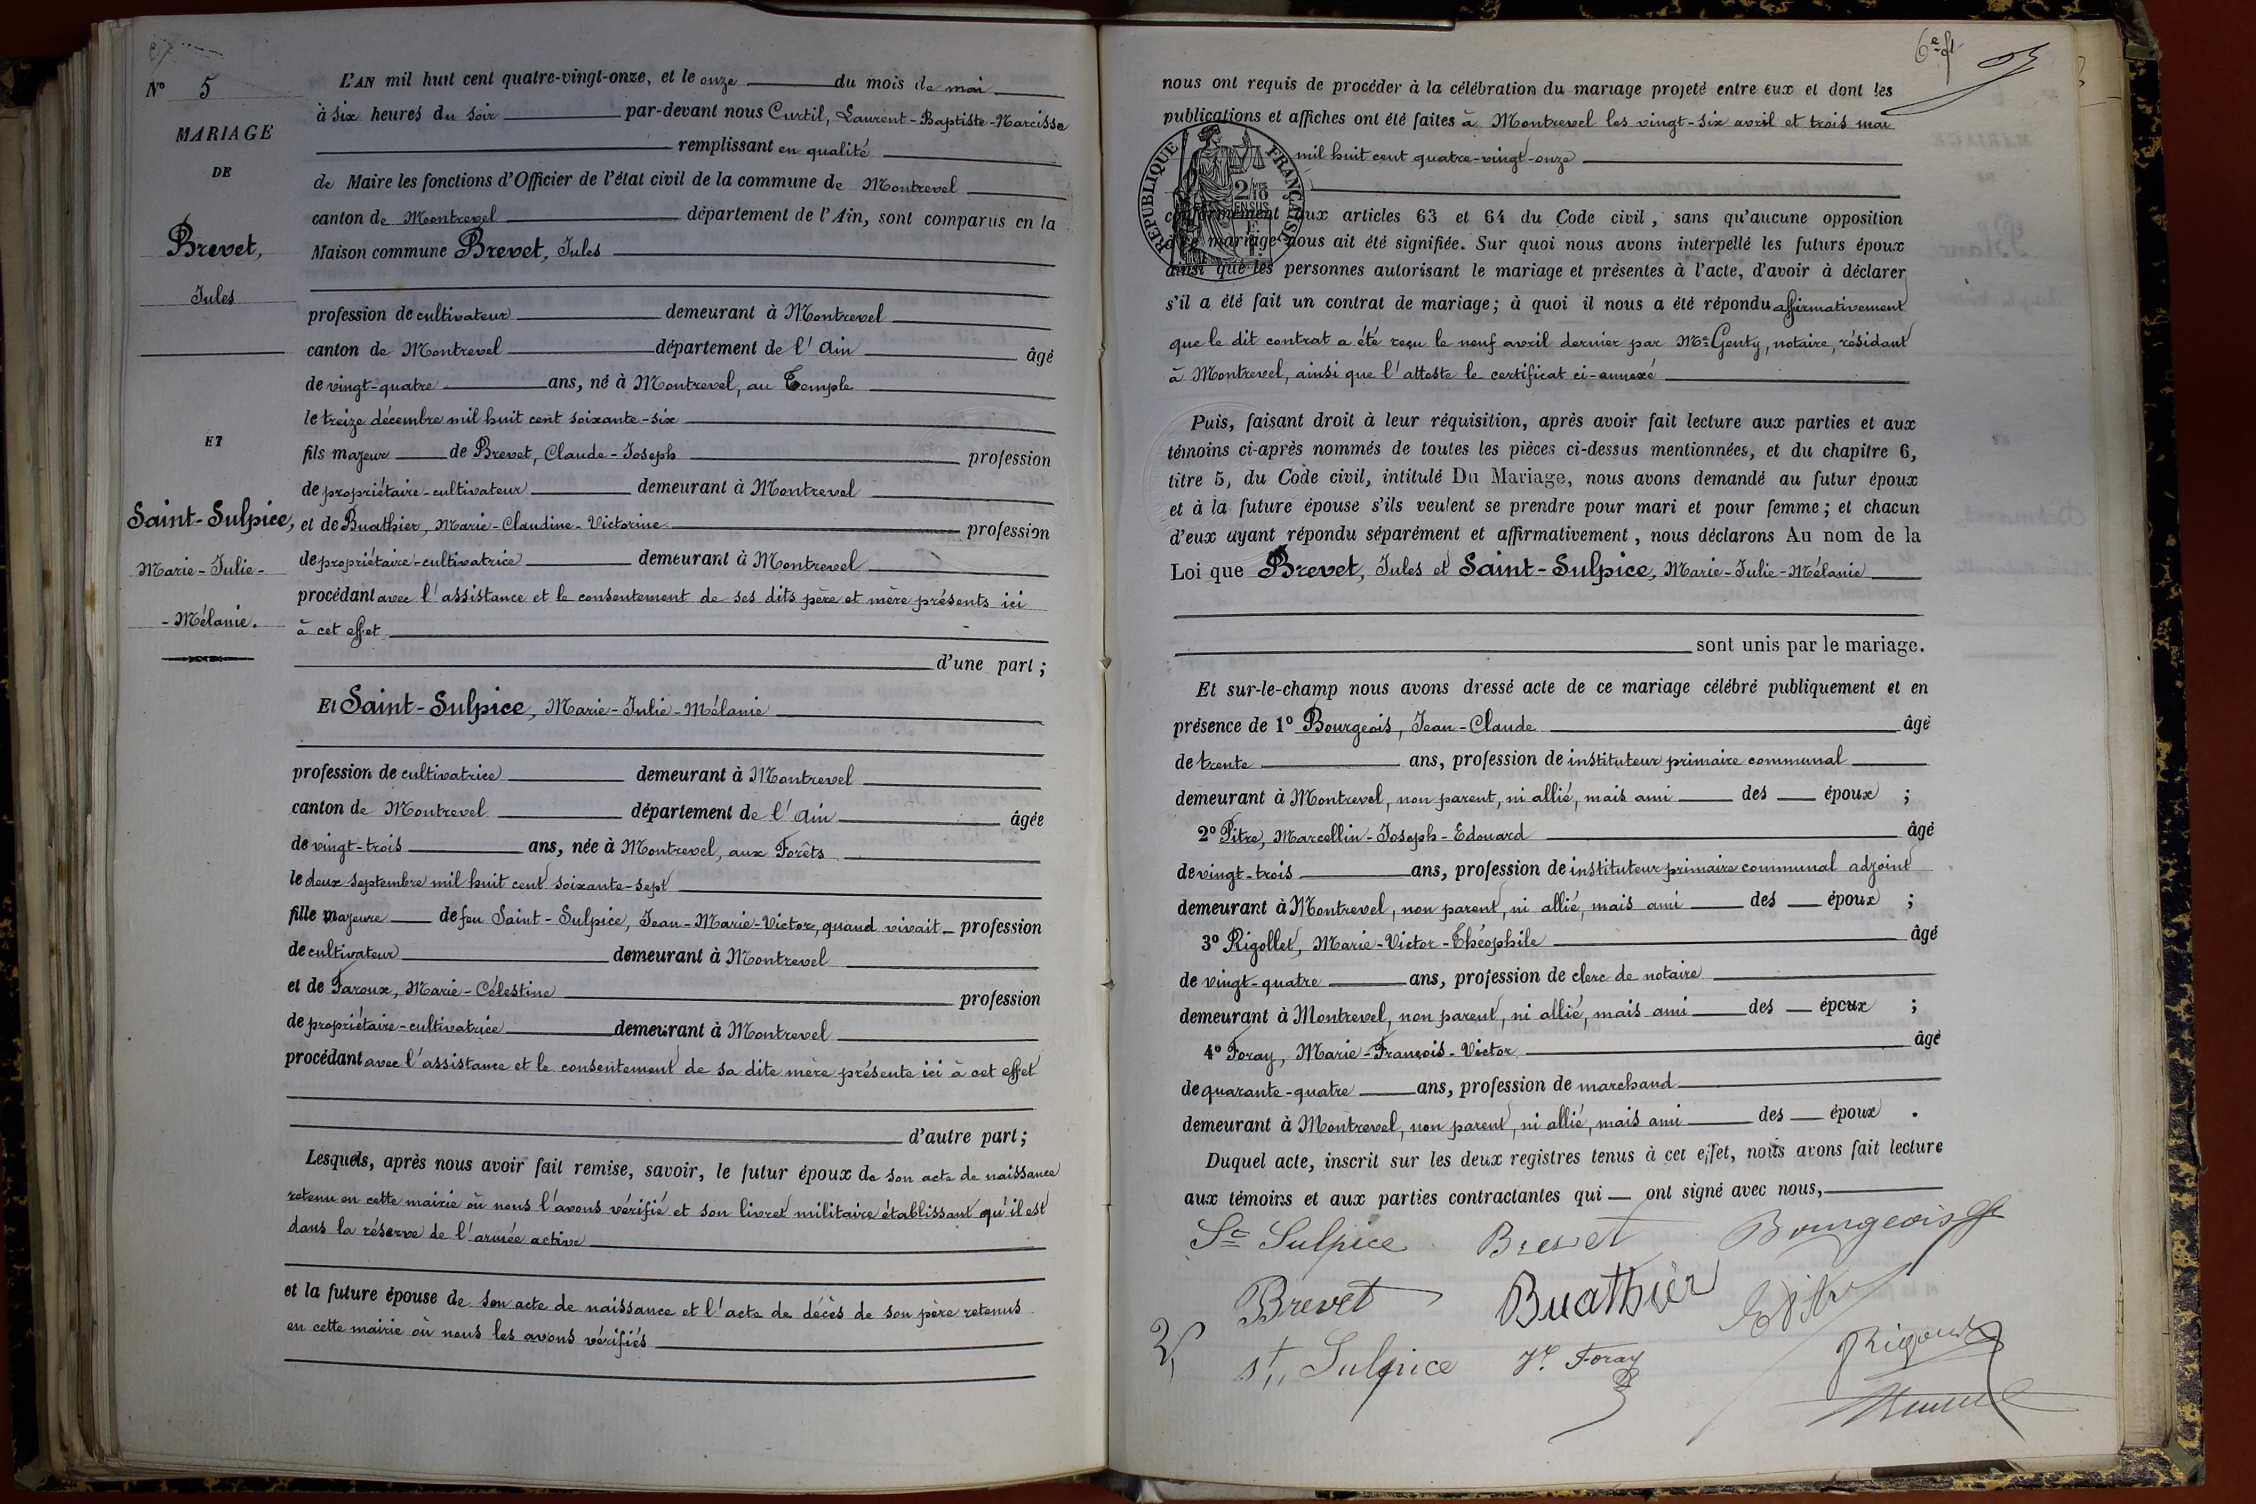 N° 5
MARIAGE
DE
Brevet,
Jules
ET
Saint-Sulpice,
Marie-Julie-
-Mélanie.
L'AN mil huit cent quatre-vingt-onze, et le onze du mois de mai
à six heures du soir par-devant nous Curtil, Laurent-Baptiste-Narcisse
remplissant en qualité
de Maire les fonctions d'Officier de l'état civil de la commune de Montrevel
canton de Montrevel département de l'Ain, sont comparus en la
Maison commune Brevet, Jules
profession de cultivateur demeurant à Montrevel
canton de Montrevel département de l'Ain âgé
de vingt-quatre ans, né à Montrevel, au Temple
le treize décembre mil huit cent soixante-six
fils majeur de Brevet, Claude-Joseph profession
de propriétaire-cultivateur demeurant à Montrevel
et de Buathier, Marie-Claudine-Victorine profession
de propriétaire-cultivatrice demeurant à Montrevel
procédant avec l'assistance et le consentement de ses dits père et mère présents ici
à cet effet
d'une part;
Et Saint-Sulpice, Marie-Julie-Mélanie
profession de cultivatrice demeurant à Montrevel
canton de Montrevel département de l'Ain âgée
de vingt-trois ans, née à Montrevel, aux Forêts
le deux septembre mil huit cent soixante-sept
fille majeure de feu Saint-Sulpice, Jean-Marie-Victor, quand vivait profession
de cultivateur demeurant à Montrevel
et de Faroux, Marie-Célestine profession
de propriétaire-cultivatrice demeurant à Montrevel
procédant avec l'assistance et le consentement de sa dite mère présente ici à cet effet
d'autre part;
Lesquels, après nous avoir fait remise, savoir, le futur époux de son acte de naissance
retenu en cette mairie où nous l'avons vérifié et son livret militaire établissant qu'il est
dans la réserve de l'armée active
et la future épouse de son acte de naissance et l'acte de décès de son père retenus
en cette mairie où nous les avons vérifiés
6e ft
nous ont requis de procéder à la célébration du mariage projeté entre eux et dont les
publications et affiches ont été faites à Montrevel les vingt-six avril et trois mai
mil huit cent quatre-vingt-onze
REPUBLIQUE FRANÇAISE
2/10 EN SUS
conformément aux articles 63 et 64 du Code civil, sans qu'aucune opposition
à ce mariage nous ait été signifiée. Sur quoi nous avons interpellé les futurs époux
ainsi que les personnes autorisant le mariage et présentes à l'acte, d'avoir à déclarer
s'il a été fait un contrat de mariage; à quoi il nous a été répondu affirmativement
que le dit contrat a été reçu le neuf avril dernier par Me Genty, notaire, résidant
à Montrevel, ainsi que l'atteste le certificat ci-annexé
Puis, faisant droit à leur réquisition, après avoir fait lecture aux parties et aux
témoins ci-après nommés de toutes les pièces ci-dessus mentionnées, et du chapitre 6,
titre 5, du Code civil, intitulé Du Mariage, nous avons demandé au futur époux
et à la future épouse s'ils veulent se prendre pour mari et pour femme; et chacun
d'eux ayant répondu séparément et affirmativement, nous déclarons Au nom de la
Loi que Brevet, Jules et Saint-Sulpice, Marie-Julie-Mélanie
sont unis par le mariage.
Et sur-le-champ nous avons dressé acte de ce mariage célébré publiquement et en
présence de 1° Bourgeois, Jean-Claude âgé
de trente ans, profession de instituteur primaire communal
demeurant à Montrevel, non parent, ni allié, mais ami des époux ;
2° Pitre, Marcellin-Joseph-Edouard âgé
de vingt-trois ans, profession de instituteur primaire communal adjoint
demeurant à Montrevel, non parent, ni allié, mais ami des époux ;
3° Rigollet, Marie-Victor-Théophile âgé
de vingt-quatre ans, profession de clerc de notaire
demeurant à Montrevel, non parent, ni allié, mais ami des époux ;
4° Foray, Marie-François-Victor âgé
de quarante-quatre ans, profession de marchand
demeurant à Montrevel, non parent, ni allié, mais ami des époux .
Duquel acte, inscrit sur les deux registres tenus à cet effet, nous avons fait lecture
aux témoins et aux parties contractantes qui ont signé avec nous,
St Sulpice Brevet Bourgeois
Brevet Buathier
St Sulpice Foray